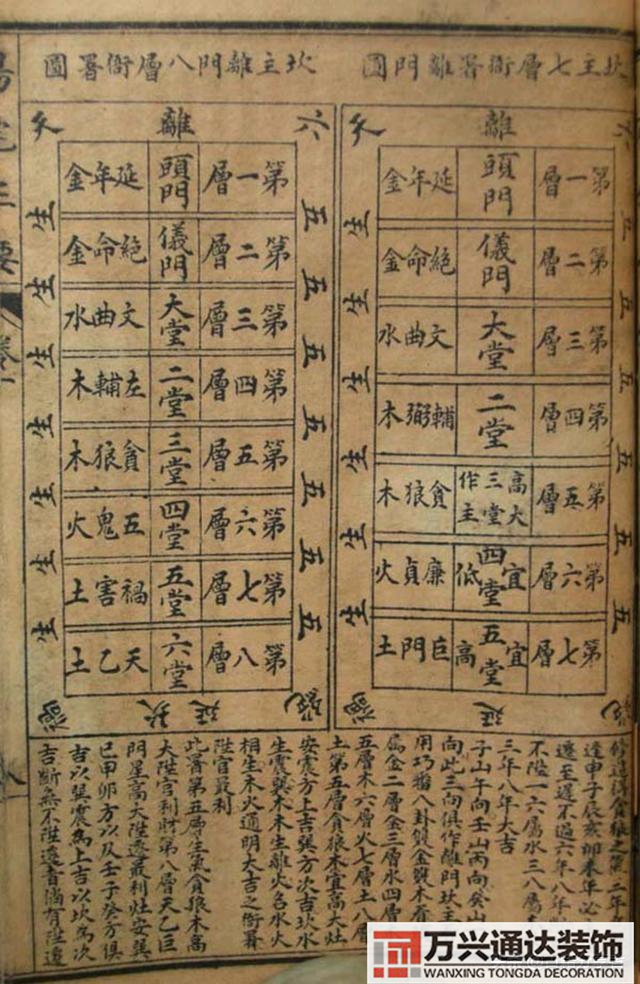 坎主七層衙署離門圖
離
天
六
第一層 頭門 延年金
第二層 儀門 絕命金
第三層 大堂 文曲水
第四層 二堂 輔弼木
第五層 高大三堂作主 貪狼木
第六層 宜四堂低 廉貞火
第七層 宜五堂高 巨門土
五 五 五 五 五 五
生 生 生 生 生 生
延
坎主離門八層衙署圖
六
離
天
第一層 頭門 延年金
第二層 儀門 絕命金
第三層 大堂 文曲水
第四層 二堂 左輔木
第五層 三堂 貪狼木
第六層 四堂 五鬼火
第七層 五堂 禍害土
第八層 六堂 天乙土
五 五 五 五 五 五 五
生 生 生 生 生 生 生
延
逢申子辰亥卯未年必
遷至遲不過六年八年
不陞一六屬水三八屬
三年八年大吉
子山午向壬山丙向癸山
向此三向俱作離門坎主
用巧番八卦變金雙木看
屬金二層金三層水四層
五層木六層火七層土八層
土第五層貪狼木宜高大灶
安震方上吉巽方次吉坎水
生震巽木木生離火名水火
相生木火通明大吉之衙署
陞官最利
此署第五層生氣貪狼木高
大陞官利財第八層天乙巨
門星高大陞遷最利灶安巽
巳甲卯方以及壬子癸方俱
吉以巽震為上吉以坎為次
吉斷無不陞遷者倘有陞遷
万兴通达装饰
WANXING TONGDA DECORATION